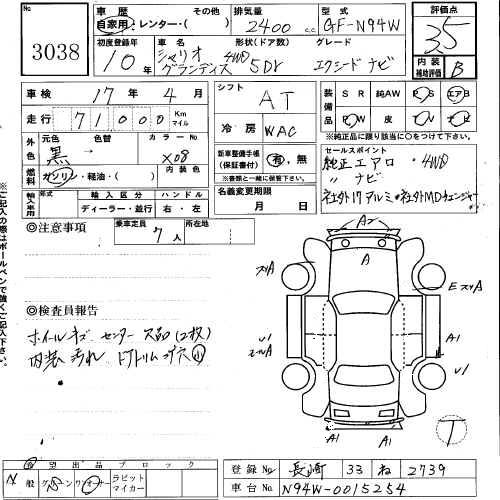 3038
車歴 自家用・レンター・( ) その他
排気量 2400 cc
型式 GF-N94W
評価点 3.5
初度登録年 10年
車名 シャリオ グランディス
形状(ドア数) 4WD 5Dr
グレード エクシード ナビ
内装補助評価 B
車検 17年 4月
シフト AT
装備品 SR 純AW PS エアB
PW 皮
※純正品に限り該当に○をつけて下さい。
走行 71000 Km マイル
冷房 WAC
外色 元色 黒 色替 → カラーNo X08
新車整備手帳(保証書付) 有・無
※書類と一緒に保管して下さい。
セールスポイント
純正エアロ・4WD
〃 ナビ
社外17アルミ・社外MDチェンジャー
燃料 ガソリン・軽油・( ) 内装色
輸入車用 型式 輸入区分 ディーラー・並行 ハンドル 右・左
名義変更期限 月 日
◎注意事項
乗車定員 7人
所在地
※ご記入の際はボールペンで強くご記入下さい。
◎検査員報告
ホイールキズ センターズ欠品(2枚)
内装汚れ ドアトリム穴小
A2
A
A1
A1
A1
T
希望出品ブロック
N
一般
ラビットマイカー
登録No 長崎 33 ね 2739
車台No N94W-0015254